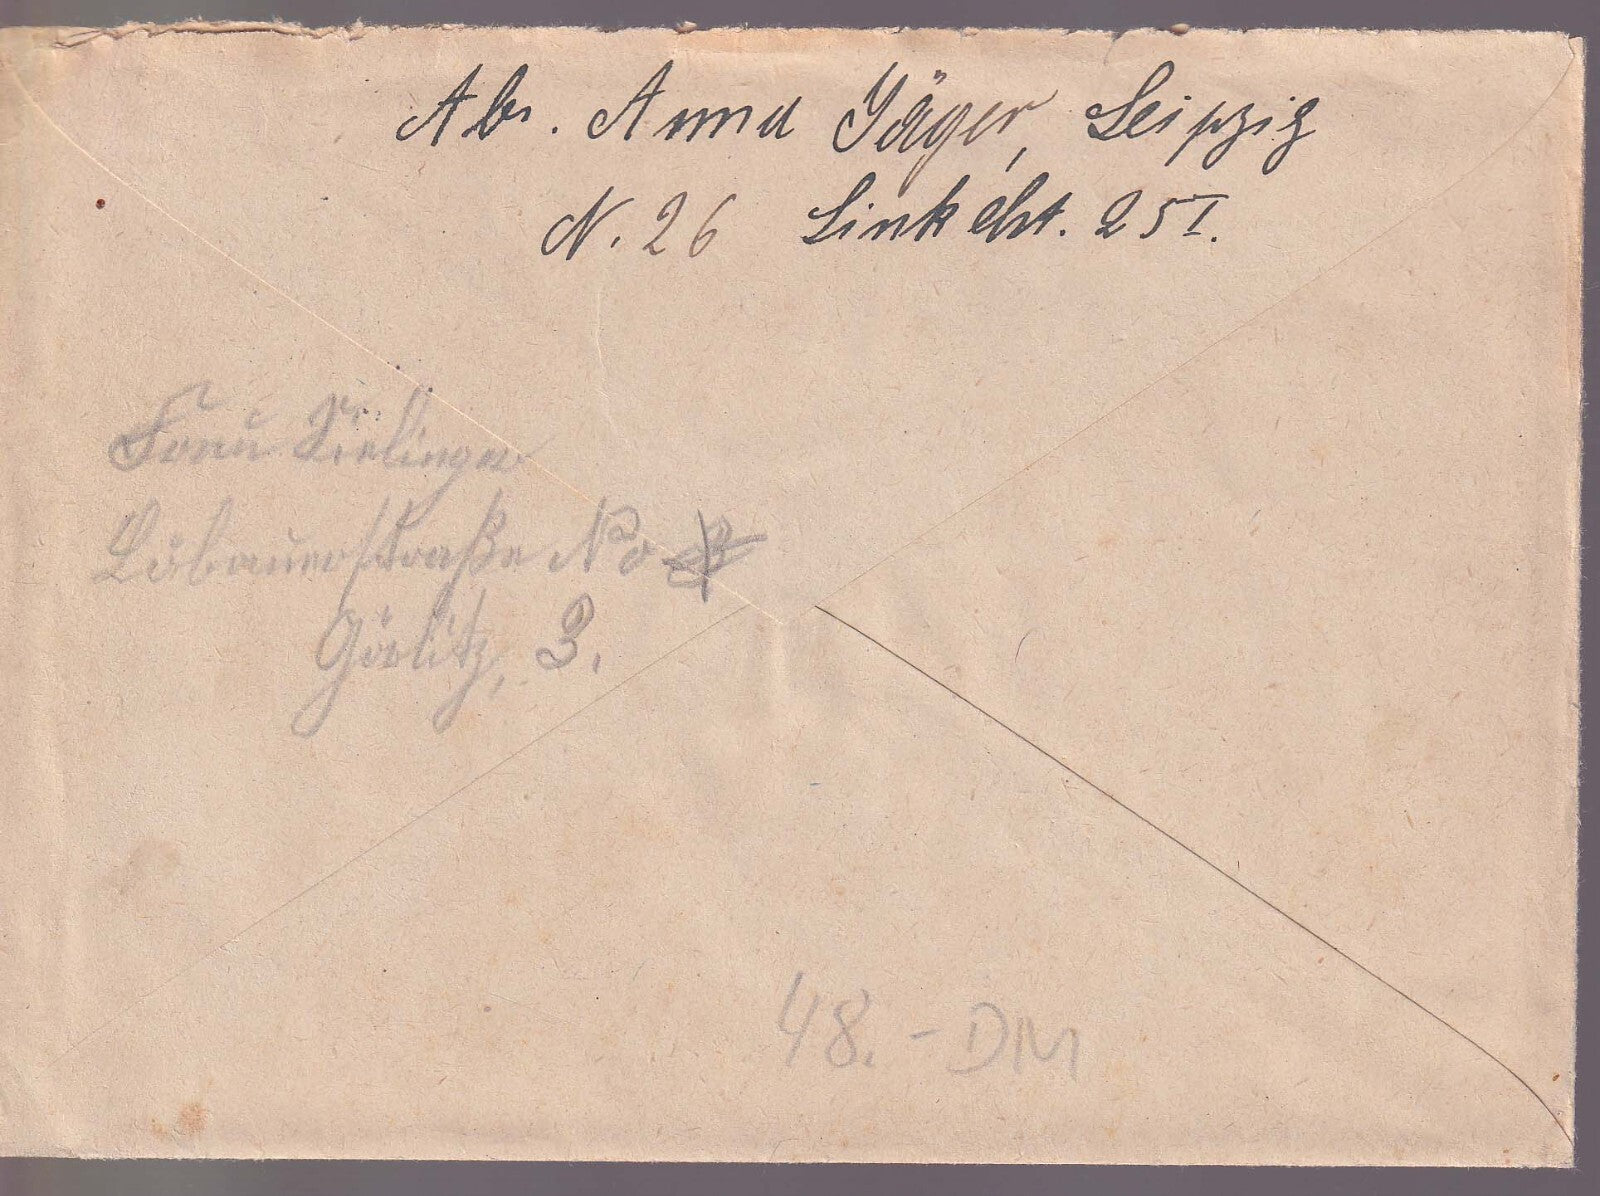 Abs. Anna Jäger, Leipzig
N. 26 Linkstr. 25 I.
Frau
Löbauerstraße No
Görlitz, 3.
48.- DM